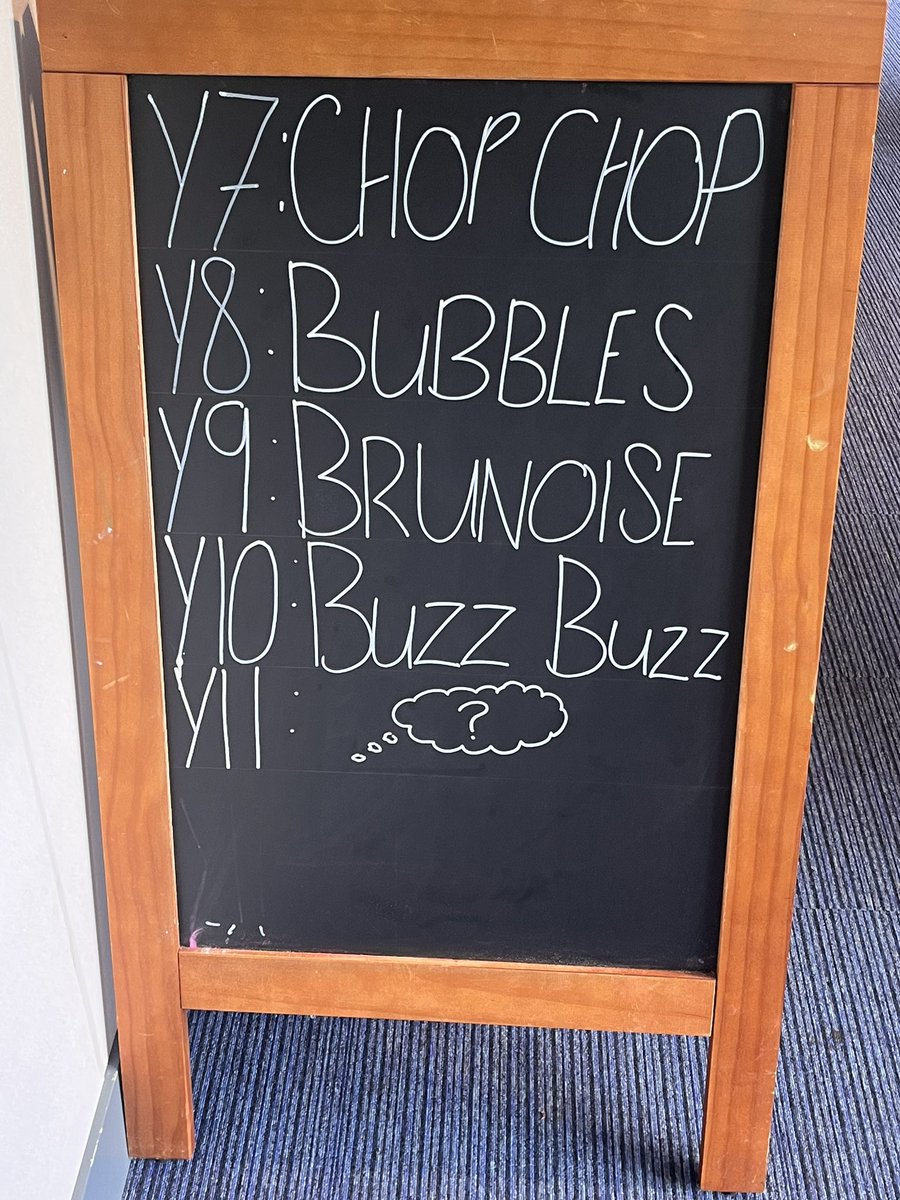 Y7: CHOP CHOP
Y8: BUBBLES
Y9: BRUNOISE
Y10: BUZZ BUZZ
Y11: ?